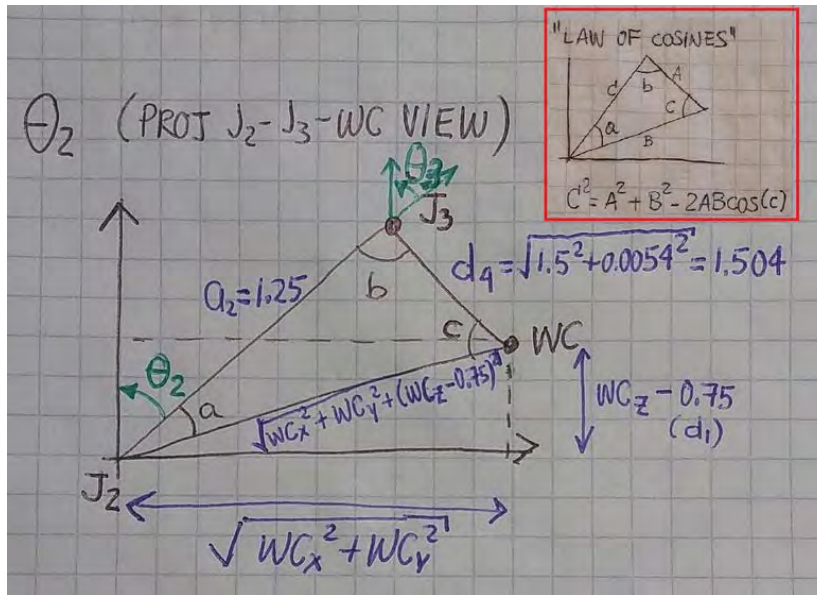 "LAW OF COSINES"
d
b
A
a
c
B
C² = A² + B² - 2ABcos(c)
θ₂ (PROJ J₂-J₃-WC VIEW)
θ₃
J₃
a₂=1.25
b
d₄=√1.5²+0.0054²=1.504
θ₂
a
c
WC
√WCx²+WCy²+(WCz-0.75)²
WCz - 0.75
(d₁)
J₂
√WCx²+WCy²